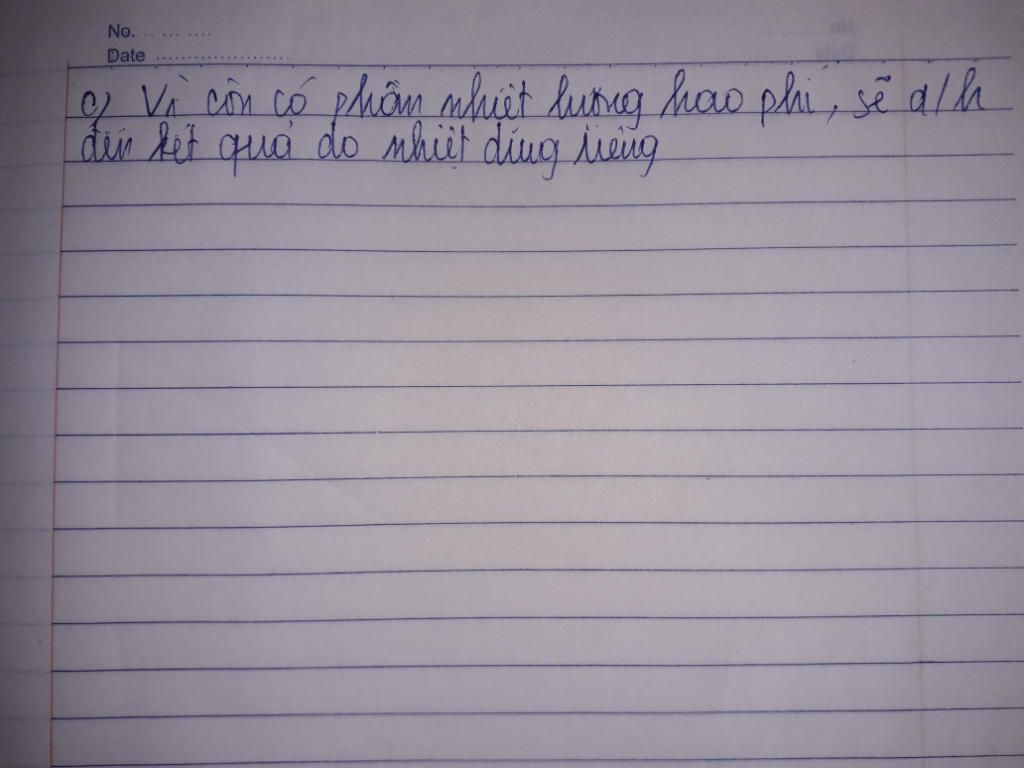 No. .. ... ....
Date ......................
c) Vì còn có phần nhiệt lượng hao phí, sẽ a/h
đến kết quả đo nhiệt dung riêng